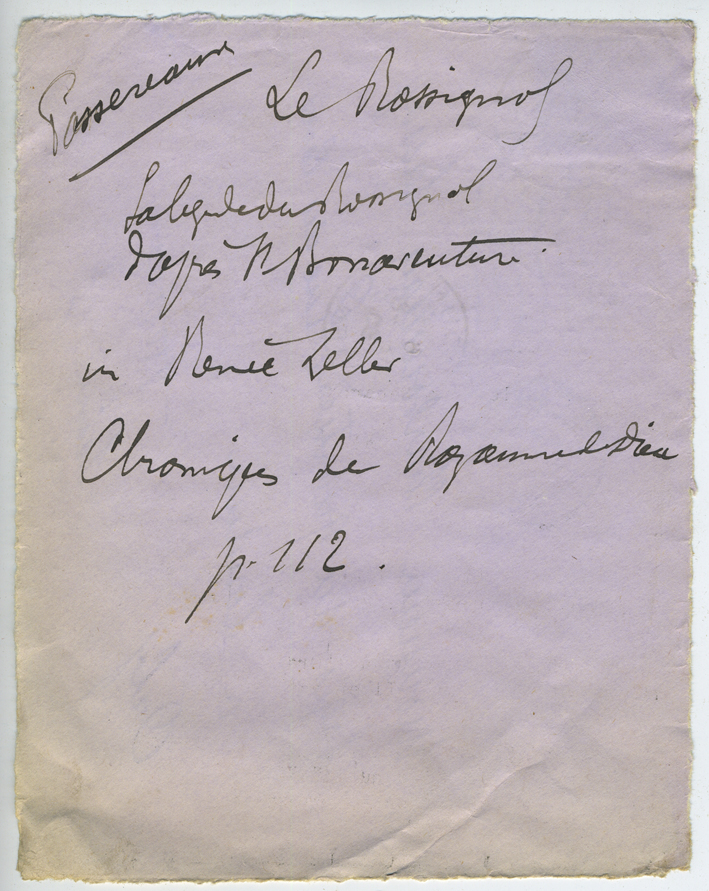 Passereaux
Le Rossignol
La légende du Rossignol
d'après St Bonaventure.
in Renée Zeller
Chroniques du Royaume de Dieu
p. 112.